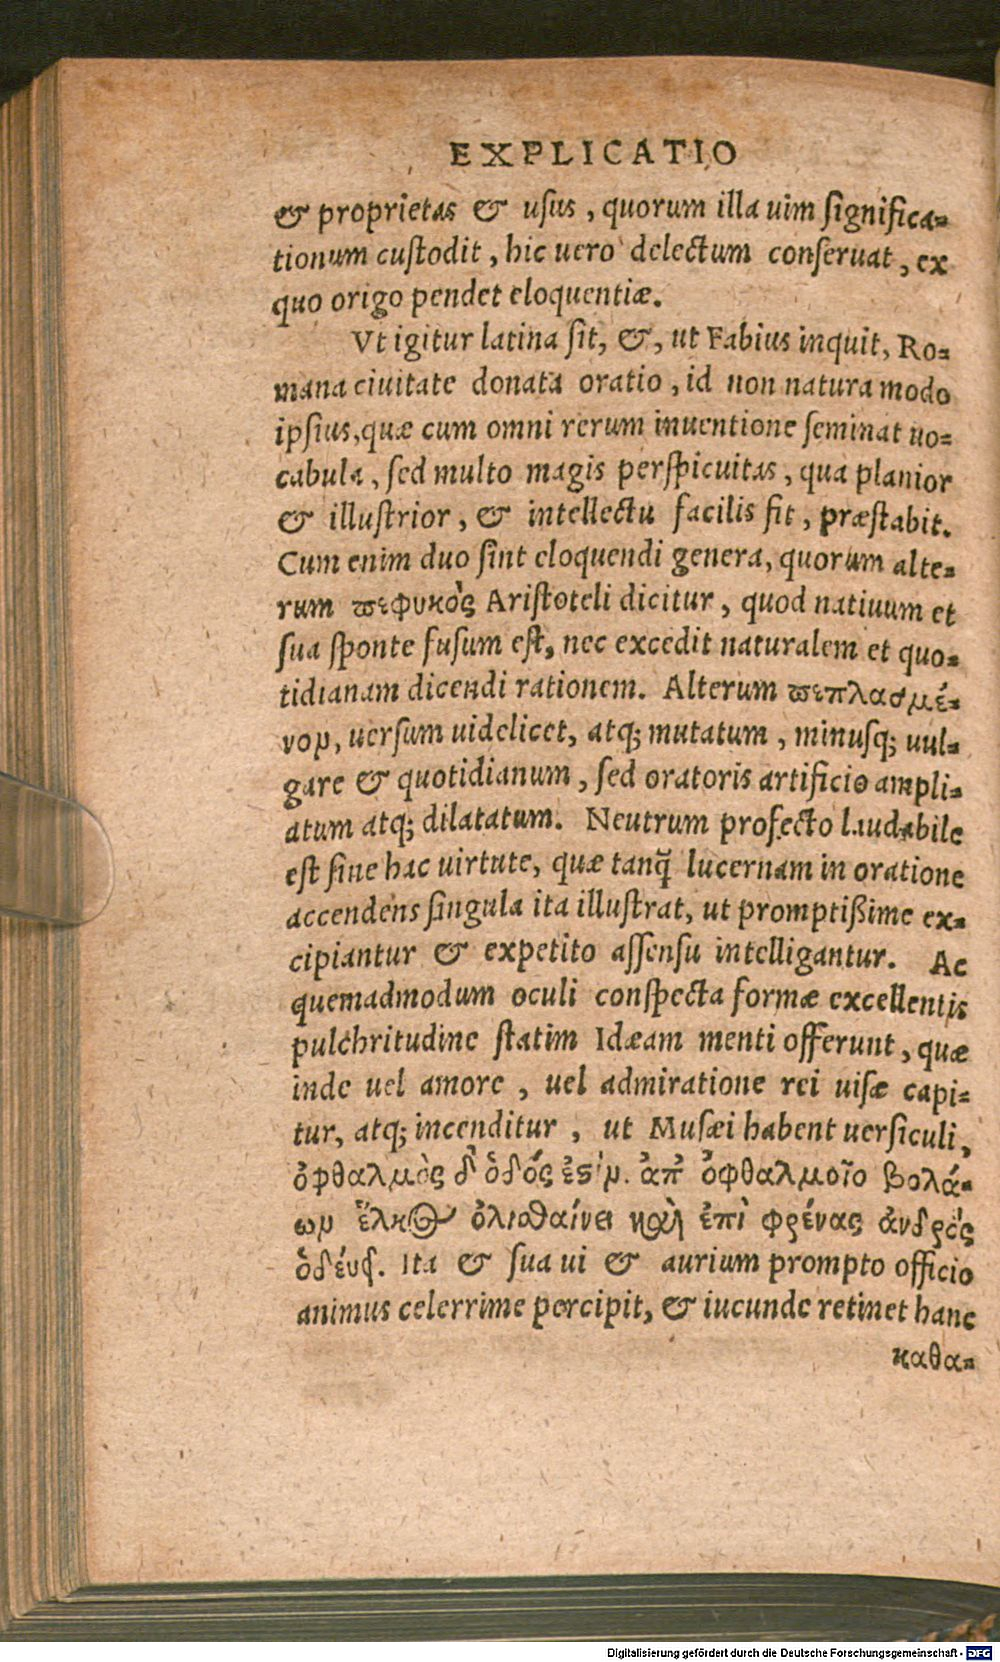 EXPLICATIO
& proprietas & usus, quorum illa uim significa=
tionum custodit, hic uero delectum conseruat, ex
quo origo pendet eloquentiæ.
Vt igitur latina sit, &, ut Fabius inquit, Ro=
mana ciuitate donata oratio, id non natura modo
ipsius, quæ cum omni rerum inuentione seminat uo=
cabula, sed multo magis perspicuitas, qua planior
& illustrior, & intellectu facilis fit, præstabit.
Cum enim duo sint eloquendi genera, quorum alte=
rum πεφυκὸς Aristoteli dicitur, quod natiuum et
sua sponte fusum est, nec excedit naturalem et quo=
tidianam dicendi rationem. Alterum πεπλασμέ=
νον, uersum uidelicet, atq; mutatum, minusq; uul=
gare & quotidianum, sed oratoris artificio ampli=
atum atq; dilatatum. Neutrum profecto laudabile
est sine hac uirtute, quæ tanq̃ lucernam in oratione
accendens singula ita illustrat, ut promptißime ex=
cipiantur & expetito assensu intelligantur. Ac
quemadmodum oculi conspecta formæ excellentis
pulchritudine statim Idæam menti offerunt, quæ
inde uel amore, uel admiratione rei uisæ capi=
tur, atq; incenditur, ut Musæi habent uersiculi,
ὀφθαλμὸς δ' ὁδός ἐστιν. ἀπ' ὀφθαλμοῖο βολά=
ων ἕλκος ὀλισθαίνει καὶ ἐπὶ φρένας ἀνδρὸς
ὁδεύει. Ita & sua ui & aurium prompto officio
animus celerrime percipit, & iucunde retinet hanc
καθα=
Digitalisierung gefördert durch die Deutsche Forschungsgemeinschaft - DFG